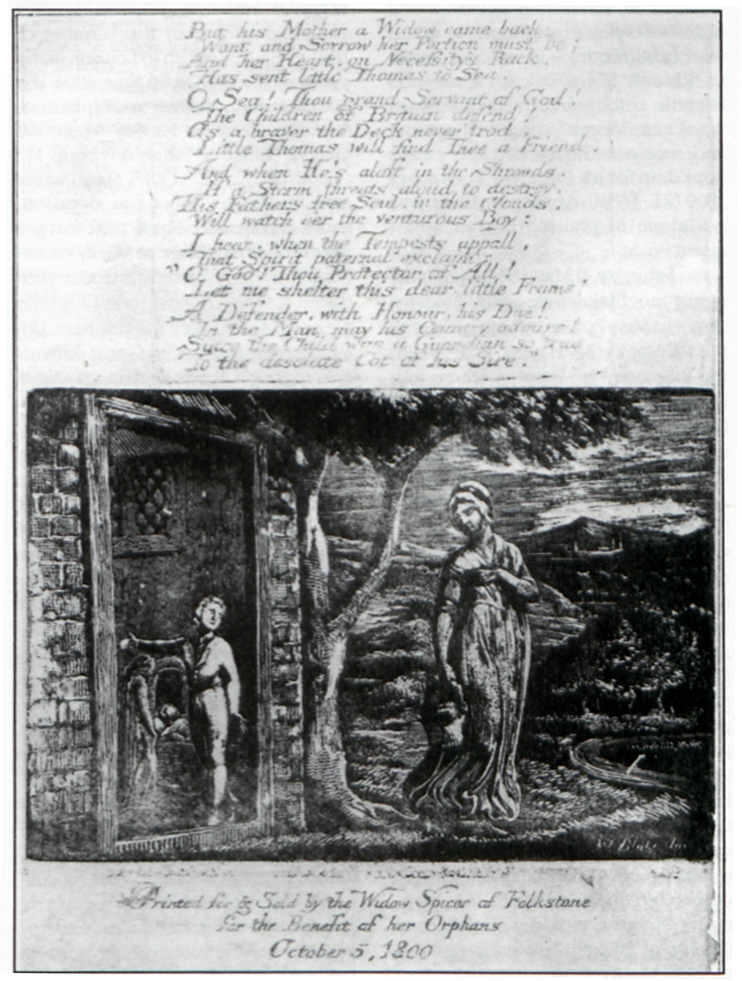 But his Mother a Widow came back;
Want and Sorrow her Portion must be;
And her Heart, on Necessity's Rack,
Has sent little Thomas to Sea.
O Sea! Thou grand Servant of God!
The Children of Britain defend!
As a braver the Deck never trod,
Little Thomas will find Thee a Friend.
And when He's aloft in the Shrouds
If a Storm threats aloud to destroy,
His Father's free Soul, in the Clouds,
Will watch o'er the venturous Boy:
I hear, when the Tempests appall,
That Spirit paternal exclaim,
"O God! Thou Protector of All!
Let me shelter this dear little Frame!
A Defender, with Honour, his Due!
In the Man, may his Country admire!
the Child a Guardian so true
To the desolate Cot of his Sire."
W Blake inv
Printed for & Sold by the Widow Spicer of Folkstone
for the Benefit of her Orphans
October 5, 1800